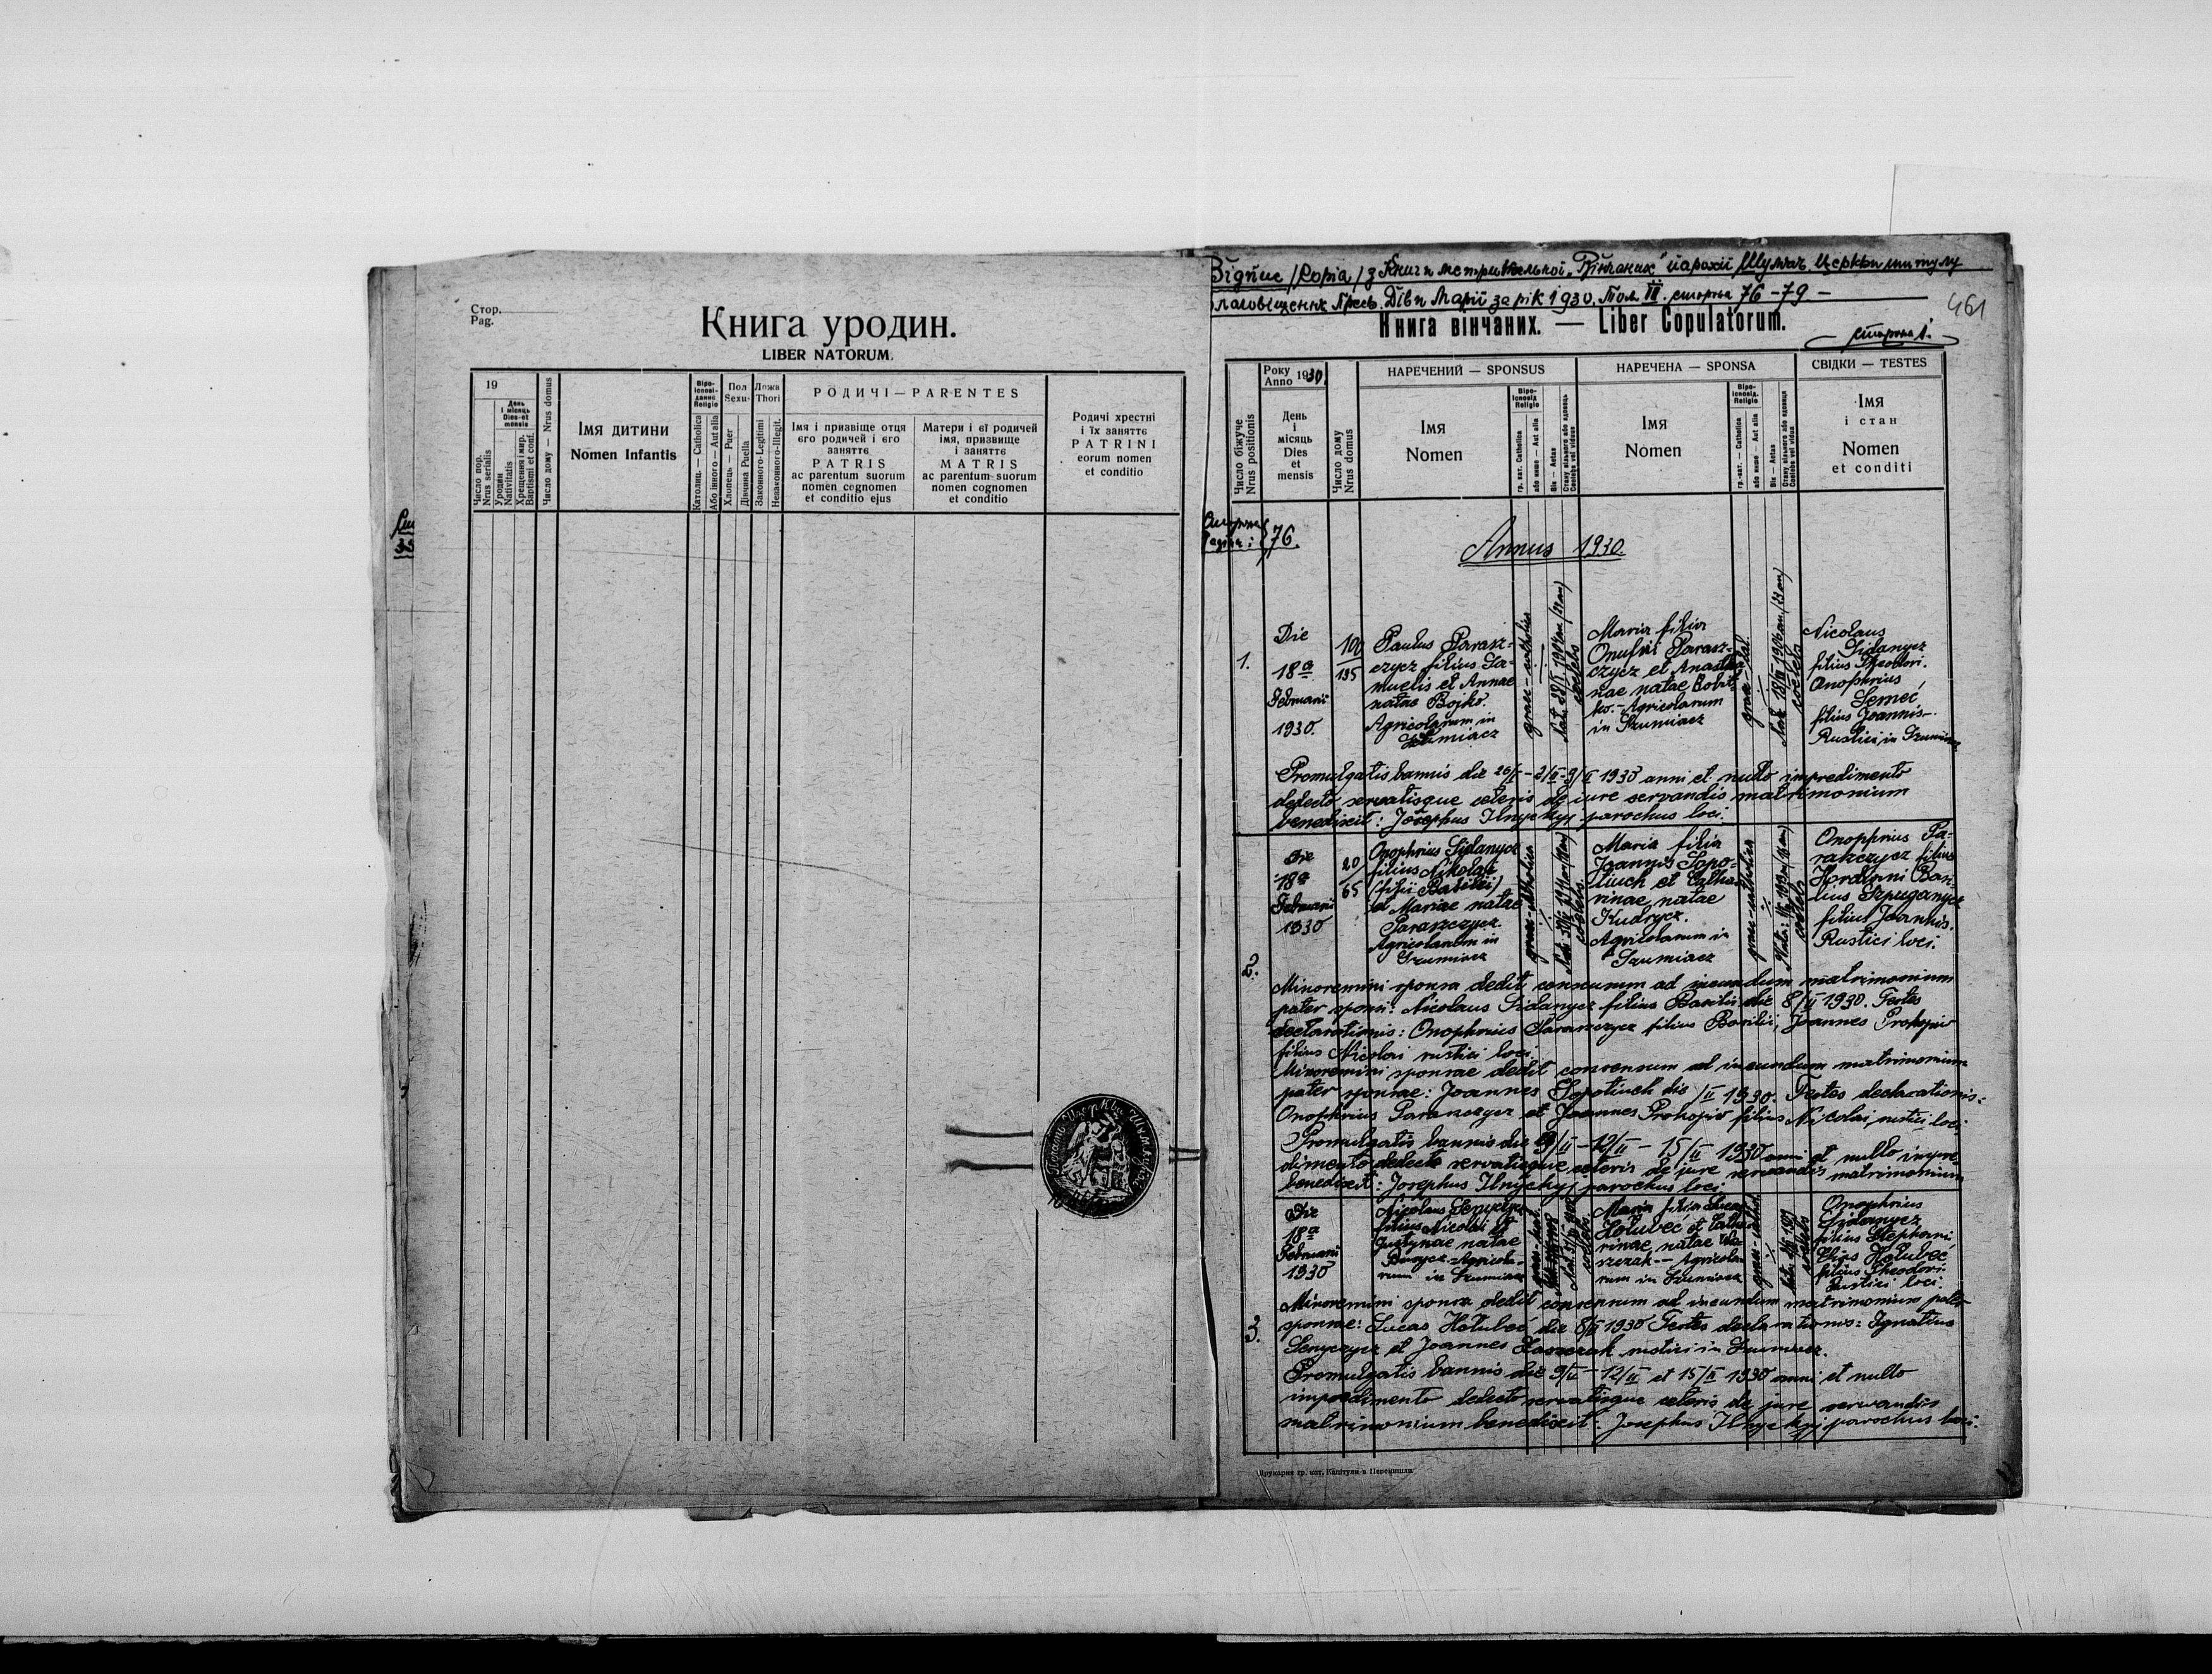 Стор.
Pag.
Книга уродин.
LIBER NATORUM.
19
День і місяць
Dies et mensis
Число пор.
Nrus serialis
Уродин
Nativitatis
Хрещення і мир.
Baptismi et conf.
Число дому — Nrus domus
Імя дитини
Nomen Infantis
Віроісповіданє
Religio
Католиц. — Catholica
Або іншого — Aut alia
Пол
Sexus
Хлопець — Puer
Дівчина Puella
Ложа
Thori
Законного-Legitimi
Незаконного-Illegit.
РОДИЧІ — PARENTES
Імя і призвіще отця
єго родичей і єго
заняттє
PATRIS
ac parentum suorum
nomen cognomen
et conditio ejus
Матери і єї родичей
імя, призвище
і занятте
MATRIS
ac parentum suorum
nomen cognomen
et conditio
Родичі хрестні
і їх заняттє
PATRINI
eorum nomen
et conditio
Відпис /Copia/ з Книги метрикальної „Вінчаних" парохії Шумяч Церкви титулу
Благовіщення Пресв. Діви Марії за рік 1930. Том III. сторона 76-79 -
461
Книга вінчаних. — Liber Copulatorum.
сторона 1.
Року
Anno 1930.
НАРЕЧЕНИЙ — SPONSUS
НАРЕЧЕНА — SPONSA
СВІДКИ — TESTES
Число біжуче
Nrus positionis
День
і
місяць
Dies
et
mensis
Число дому
Nrus domus
Імя
Nomen
Віроісповід.
Religio
гр. кат. Catholica
або инше — Aut alia
Вік — Aetas
Стану вільного або вдовець
Coelebs vel viduus
Імя
Nomen
Віроісповід.
Religio
гр.-кат. — Catholica
або инше — Aut alia
Вік — Aetas
Імя
і стан
Nomen
et conditi
Сторона
76.
Annus 1930.
1.
Die
18a
Februarii
1930.
100
135
Paulus Parasz-
czycz filius Sa-
muelis et Annae
natae Bojko.
Agricolarum in
Szumiacz
graec-catholica
coelebs
Maria filia
Onufrii Parasz-
czycz et Anasta-
nae natae
Agricolarum
in Szumiacz
coelebs
Nicolaus
Sidanycz
filius Theodori.
Onophrius
Semeć
filius Joannis-
Rustici in Szumiacz
Promulgatis bannis die 26/I - 2/II - 9/II 1930 anni et nullo impredimento
detecto servatisque ceteris de iure servandis matrimonium
benedixit: Josephus Ilnyckyj parochus loci.
2.
Die
18a
Februarii
1930
20
65
Onophrius Sidanycz
filius Nikolai
(filii Basilii)
et Mariae natae
Paraszczycz.
Agricolarum in
Szumiacz
graec-catholica
coelebs.
Maria filia
Joannis Sopo-
tiuch et Catha-
rinae, natae
Kudrycz.
Agricolarum in
Szumiacz
graec-catholica
coelebs
Onophrius Pa-
raszczycz filius
lius Szpuganycz
filius Joannis.
Rustici loci.
Minoremini sponsa dedit consensum ad ineundum matrimonium
pater sponsi: Nicolaus Sidanycz filius Basilii die 8/II 1930. Testes
declarationis: Onophrius Paraszczycz filius Basilii, Joannes Prokopiw
filius Nicolai rustici loci.
Minoremini sponsae dedit consensum ad ineundum matrimonium
pater sponsae: Joannes Sopotiuch die /II 1930. Testes declarationis:
Onophrius Paraszczycz et Joannes Prokopiw filius Nicolai, rustici loci
Promulgatis bannis die 9/II - 12/II - 15/II 1930 anni et nullo impre
dimento detecto servatisque ceteris de jure servandis matrimonium
benedixit: Josephus Ilnyckyj parochus loci
3.
Die
18a
Februarii
1930
Nicolaus Senyczycz
filius Nicolai et
Justynae natae
Burycz - Agricola-
rum in Szumiacz
coelebs.
Maria filia Lucae
Hołubeć et Catha-
rinae, natae
szczak - Agricola-
rum in Szumiacz
coelebs
Onophrius
Sidanycz
filius Stephani
Elias Hołubeć
filius Theodori
Rustici loci.
Minoremini sponsa dedit consensum ad ineundum matrimonium pater
sponsae: Lucas Hołubeć die 8/II 1930 Testes declarationis: Ignatius
Senyczycz et Joannes rustici in Szumiacz.
Promulgatis bannis die 9/II - 12/II et 15/II 1930 anni et nullo
impedimento detecto servatisque ceteris de jure servandis
matrimonium benedixit: Josephus Ilnyckyj parochus loci.
Друкарня гр. кат. Капітули в Перемишли.